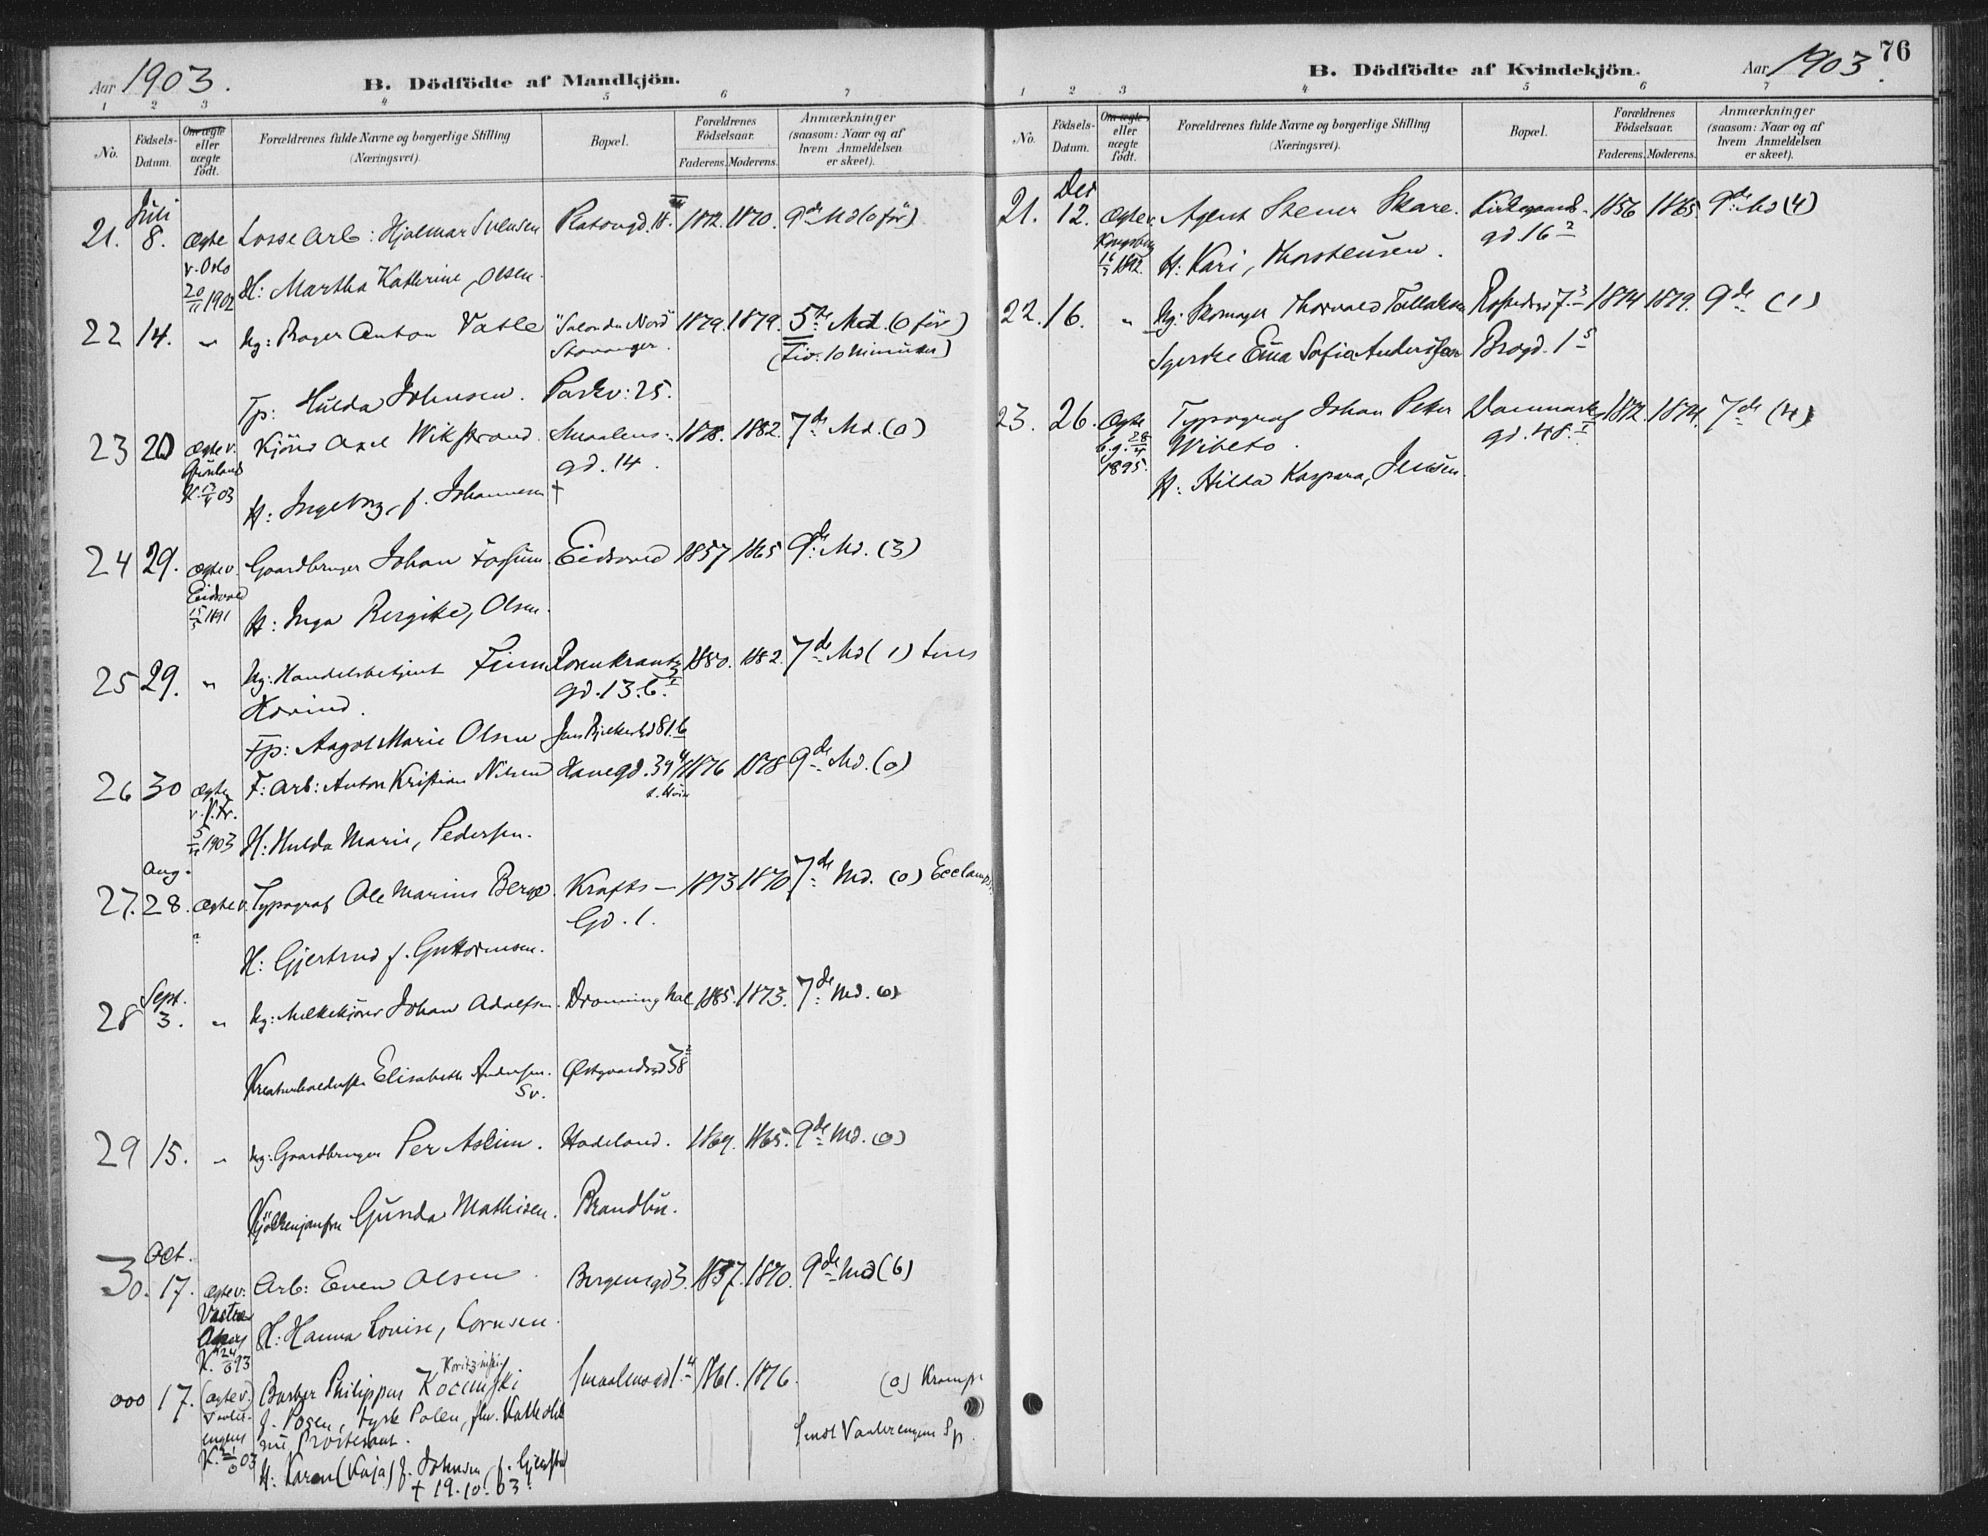 Aar 1903.
B. Dödfödte af Mandkjön.
1 2 3 4 5 6 7
No.
Födsels-Datum.
Om ægte eller uægte födt.
Forældrenes fulde Navne og borgerlige Stilling (Næringsvei).
Bopæl.
Forældrenes Födselsaar.
Faderens. Moderens.
Anmærkninger (saasom: Naar og af hvem Anmeldelsen er skeet).
Juli
21. 8. Ægte Losse arb: Hjalmar Svensen 1872. 1870. 9de Md (0 för)
v. Oslo
20/11 1902 H: Martha Kathrine, Olsen.
22 14. " Ug: Bager Anton Vatle "Salon du Nord" 1879. 1879. 5te Md. (0 för)
Stavanger. (Liv. 10 Minuter)
Tp: Hulda Johnsen. Parkv: 25.
23 20 Ægte v. Kjörer Axel Wikstrand. Smaalens- 1878. 1882. 7de Md. (0)
Grönland gd. 14.
03 H: Ingeborg, f. Johannesen +
24 29. Ægte v. Gaardbruger Johan Fossum. Eidsvold 1857 1865 9de Md. (3)
Eidsvold
15/5 1891 H: Inga Bergitte, Olsen.
25 29. " Ug: Handelsbetjent Finn Rosenkrantz 1880. 1882. 7de Md (1)
Hovind. gd. 13. b.
Fp: Aagot Marie Olsen Jens Bjelkesgd 81 b
26 30 Ægte F: Arb: Anton Kristian Nilsen Havegd. 39 1876 1878 9de Md. (0)
v. V. Fr.
1903 H: Hulda Marie, Pedersen.
Aug.
27. 28. Ægte v. Typograf Ole Marius Berge. Krafts- 1873 1870 7de Md. (0) Eclamps.
Gd. 1.
H: Gjertrud f. Guttormsen.
Sept.
28 3. " Ug: Melkekjörer Johan Adolfsen. Dronning 1885. 1873. 7de Md. (0)
Elisabeth Andersen. Östgaardsgd 38
Sv.
29 15. " Ug: Gaardbruger Per Askim. Hadeland. 1869. 1865. 9de Md. (0)
Gunda Mathisen. Brandbu.
Oct.
30. 17. Ægte v: Arb: Even Olsen. Bergensgd 3. 1837. 1870. 9de Md (6)
Vestre
Aker H: Hanna Lovise, Larnsen.
93
000 17. (Ægte v. Barber Philippus Kocinski Smaalensgd 1. 1861. 1876. (0) Krampe
f. Posen, tysk Polen,
nu Protestant. Sendt Vaalerengens Sp.
03 H: Karen (Kaja) f. Johnsen,
+ 19.10.03.
76
B. Dödfödte af Kvindekjön.
Aar 1903.
1 2 3 4 5 6 7
No.
Födsels-Datum.
Om ægte eller uægte födt.
Forældrenes fulde Navne og borgerlige Stilling (Næringsvei).
Bopæl.
Forældrenes Födselsaar.
Faderens. Moderens.
Anmærkninger (saasom: Naar og af hvem Anmeldelsen er skeet).
Des
21. 12. Ægte v. Agent Stener Skare. Kirkegaards- 1856 1865 9de Md (4)
Kongsberg gd. 16
1892. H: Kari, Thorstensen.
22. 16. " Ug: Skomager Thorvald Tollaksen 7. 1874 1879. 9de (1)
Syerske Ema Sofia Andersen Brogd. 1
23. 26. Ægte Typograf Johan Peter Danmarks 1872. 1874. 7de (4)
Wibeto. gd. 48.
1895. H: Hilda Kaspara, Jensen.